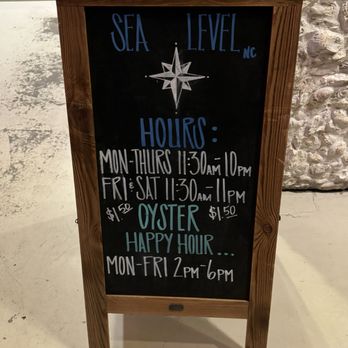 SEA LEVEL NC
HOURS:
MON-THURS 11:30AM-10PM
FRI & SAT 11:30AM-11PM
$1.50 OYSTER $1.50
HAPPY HOUR...
MON-FRI 2PM-6PM